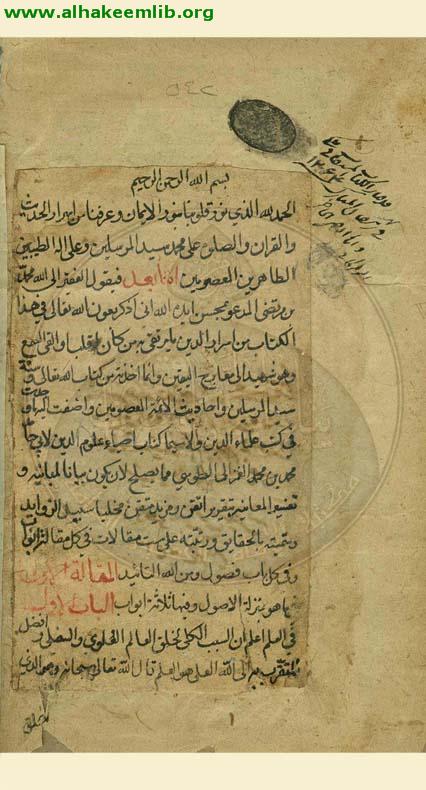 www.alhakeemlib.org
٥٤٢
بسم الله الرحمن الرحيم
الحمد لله الذي نور قلوبنا بنور الايمان وعرفنا من اسرار الحديث
والقران والصلوة على محمد سيد المرسلين وعلى اله الطيبين
الطاهرين المعصومين اما بعد فيقول الفقير الى الله محمد
بن مرتضى المدعو بمحسن ايده الله انى اذكر بعون الله تعالى في هذا
الكتاب من اسرار الدين ما يرتقى به من كان له قلب والقى السمع
وهو شهيد الى معارج اليقين وانما اخذته من كتاب الله تعالى وسنة
سيد المرسلين واحاديث الائمة المعصومين واضفت اليها
في كتب علماء الدين ولا سيما كتاب احياء علوم الدين لابي حامد
محمد بن محمد الغزالى الطوسى مما يصلح لان يكون بيانا لمبانيه و
تفسيرا لمعانيه بتقرير اتقن ومزيد تيقن مخليا سبيل الزوايد
وسميته بالحقايق ورتبته على ست مقالات في كل مقالة ابواب
وفي كل باب فصول ومن الله التاييد المقالة الاولى
فيما هو بمنزلة الاصول وفيها ثلاثة ابواب الباب الاول
في العلم اعلم ان السبب الكلى لخلق العالم العلوى والسفلى و افضل
المتقرب به الى الله العلى هو العلم قال الله تعالى سبحانه وهو الذى
خلق